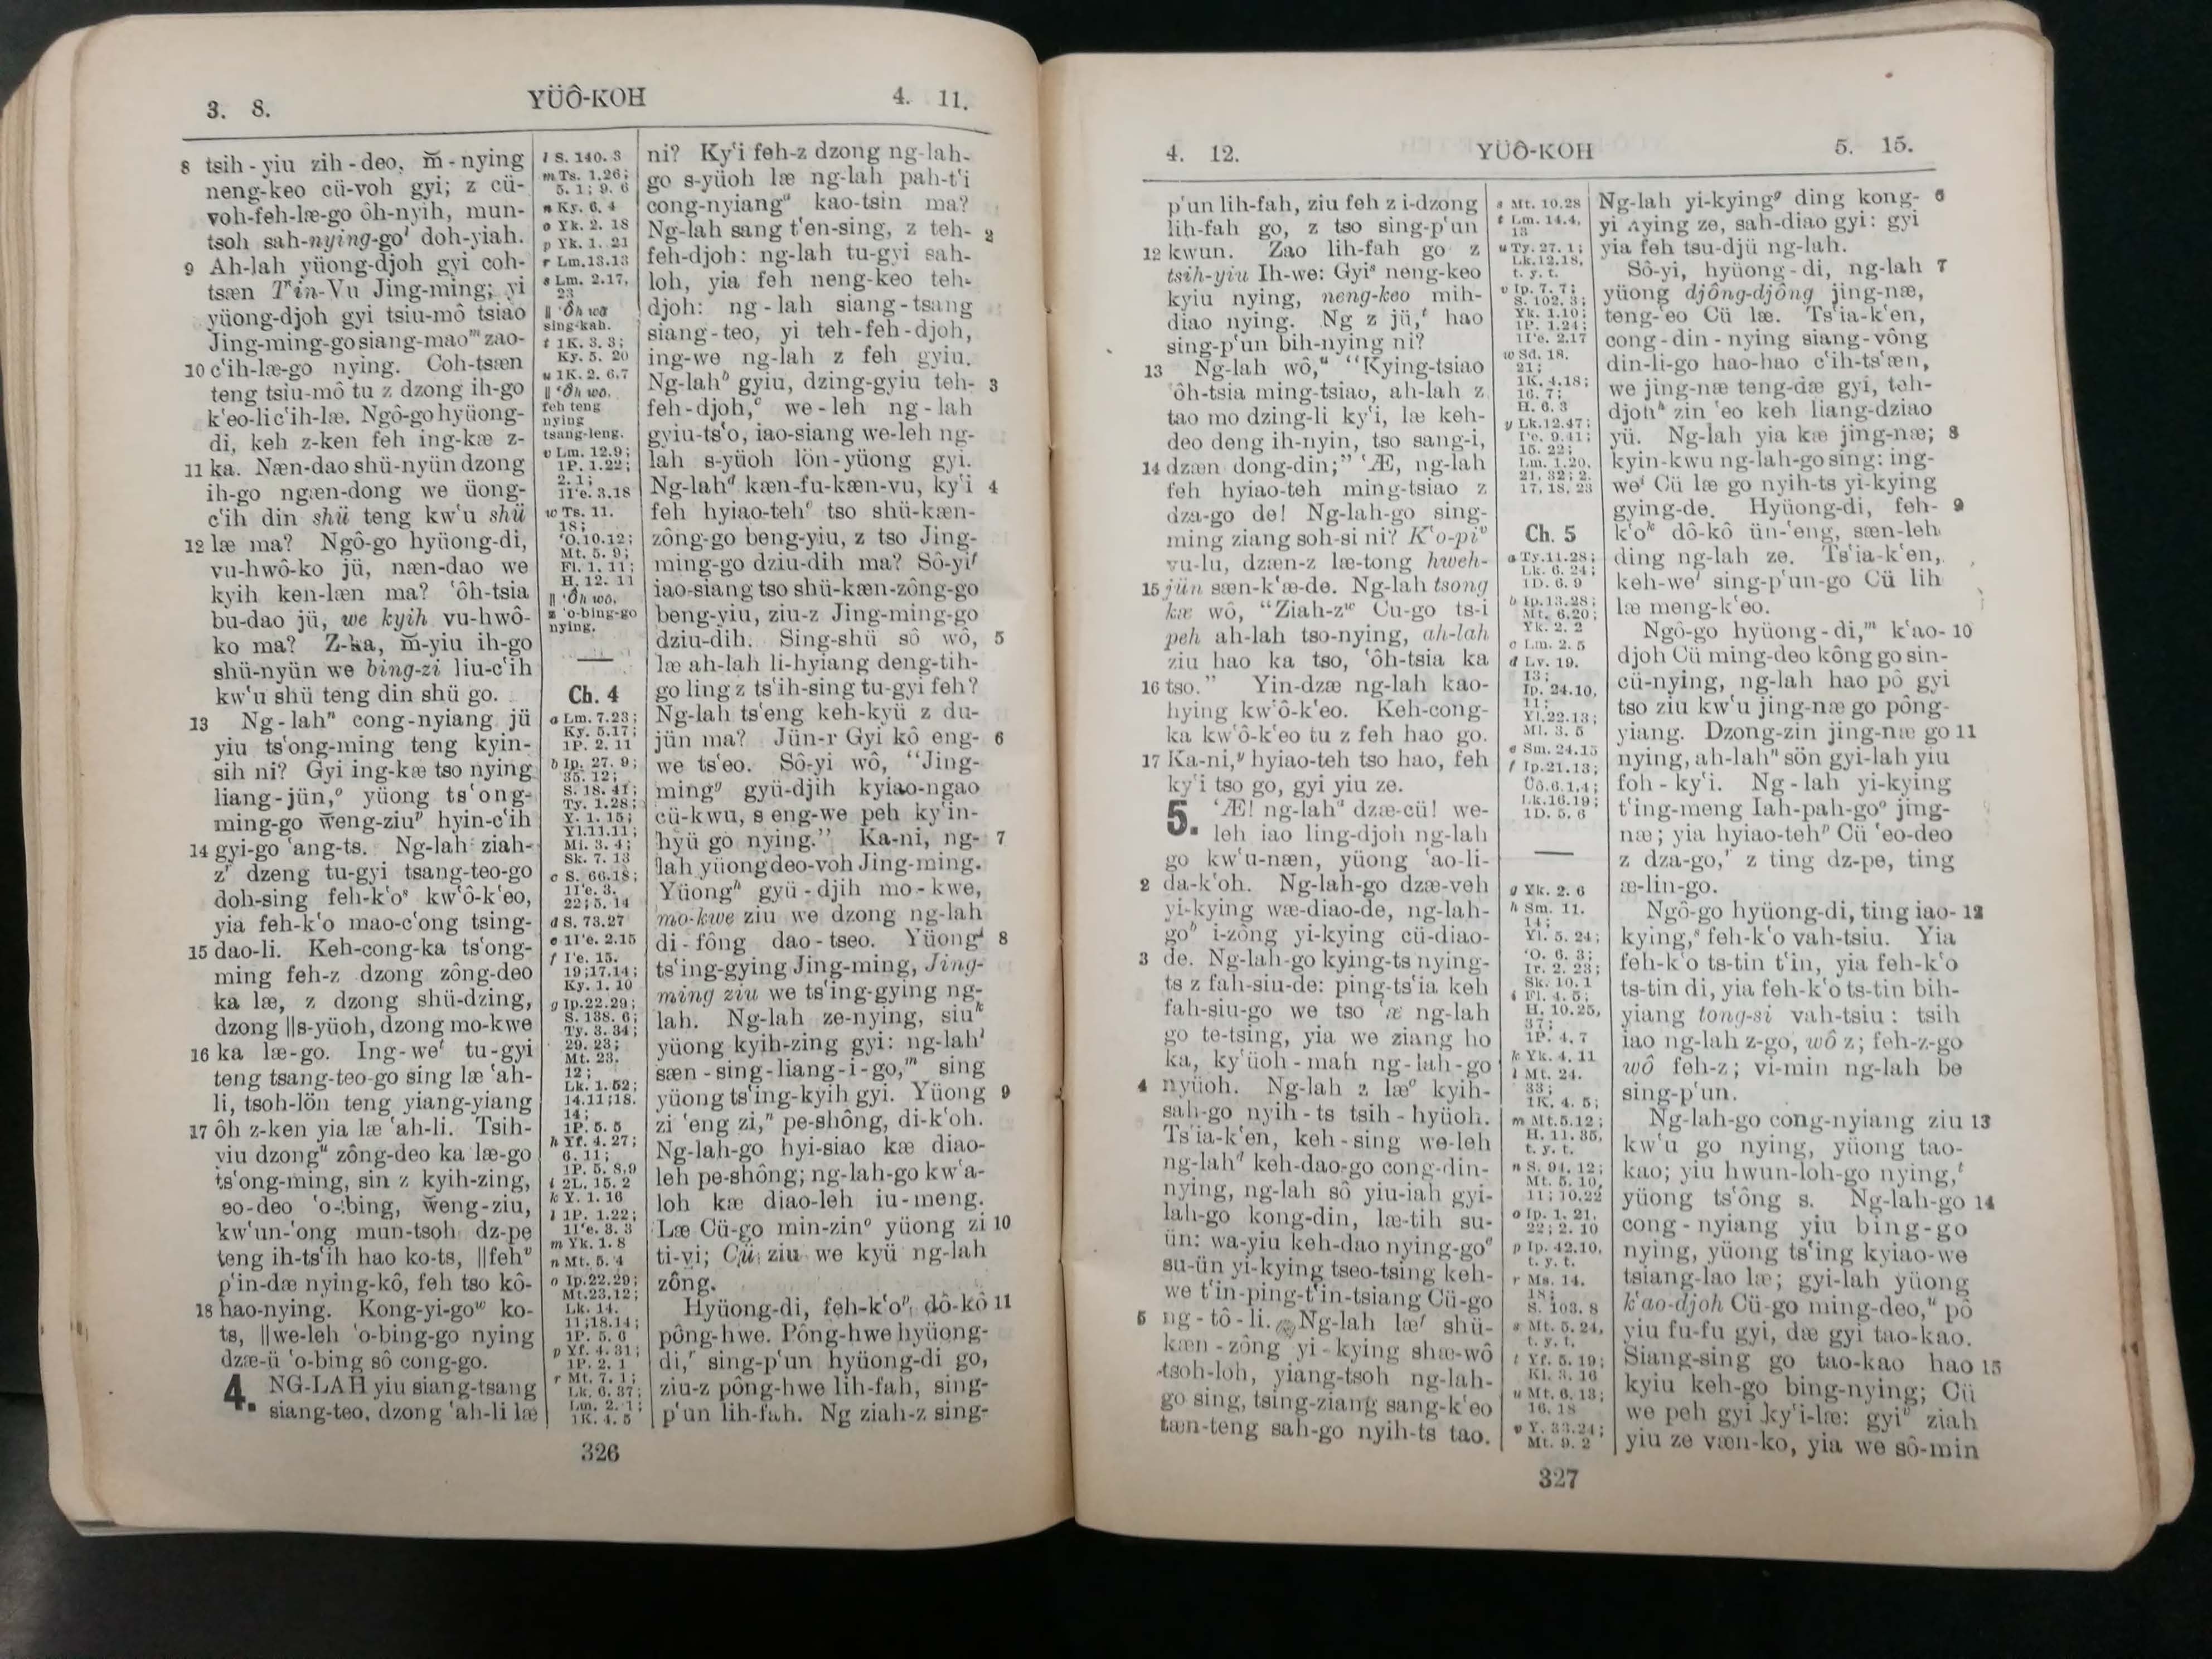 3. 8.
YÜÔ-KOH
4. 11.
8 tsih-yiu zih-deo, m̆-nying
neng-keo cü-voh gyi; z cü-
voh-feh-læ-go ôh-nyih, mun-
tsoh sah-nying-go^l doh-yiah.
9 Ah-lah yüong-djoh gyi coh-
tsæn T'in-Vu Jing-ming; yi
yüong-djoh gyi tsiu-mô tsiao
Jing-ming-go siang-mao^m zao-
10 c'ih-læ-go nying. Coh-tsæn
teng tsiu-mô tu z dzong ih-go
k'eo-li c'ih-læ. Ngô-go hyüong-
di, keh z-ken feh ing-kæ z-
11 ka. Næn-dao shü-nyün dzong
ih-go ngæn-dong we üong-
c'ih din shü teng kw'u shü
12 læ ma? Ngô-go hyüong-di,
vu-hwô-ko jü, næn-dao we
kyih ken-læn ma? 'ôh-tsia
bu-dao jü, we kyih vu-hwô-
ko ma? Z-ka, m̆-yiu ih-go
shü-nyün we bing-zi liu-c'ih
kw'u shü teng din shü go.
13 Ng-lah^n cong-nyiang jü
yiu ts'ong-ming teng kyin-
sih ni? Gyi ing-kæ tso nying
liang-jün,^o yüong ts'ong-
ming-go w̆eng-ziu^p hyin-c'ih
14 gyi-go 'ang-ts. Ng-lah ziah-
z^r dzeng tu-gyi tsang-teo-go
doh-sing feh-k'o^s kw'ô-k'eo,
yia feh-k'o mao-c'ong tsing-
15 dao-li. Keh-cong-ka ts'ong-
ming feh-z dzong zông-deo
ka læ, z dzong shü-dzing,
dzong ||s-yüoh, dzong mo-kwe
16 ka læ-go. Ing-we^t tu-gyi
teng tsang-teo-go sing læ 'ah-
li, tsoh-lön teng yiang-yiang
17 ôh z-ken yia læ 'ah-li. Tsih-
yiu dzong^u zông-deo ka læ-go
ts'ong-ming, sin z kyih-zing,
eo-deo 'o-bing, w̆eng-ziu,
kw'un-'ong mun-tsoh dz-pe
teng ih-ts'ih hao ko-ts, ||feh^v
p'in-dæ nying-kô, feh tso kô-
18 hao-nying. Kong-yi-go^w ko-
ts, ||we-leh 'o-bing-go nying
dzæ-ü 'o-bing sô cong-go.
4. NG-LAH yiu siang-tsang
siang-teo, dzong 'ah-li læ
l S. 140. 3
m Ts. 1.26;
5. 1; 9. 6
n Ky. 6. 4
o Yk. 2. 18
p Yk. 1. 21
r Lm.13.13
s Lm. 2.17,
23
|| 'Ôh wô
sing-kah.
t 1K. 3. 3;
Ky. 5. 20
u 1K. 2. 6,7
|| 'Ôh wô,
feh teng
nying
tsang-leng.
v Lm. 12.9;
1P. 1.22;
2. 1;
1I'e. 3.18
w Ts. 11.
18;
'O.10.12;
Mt. 5. 9;
Fl. 1. 11;
H. 12. 11
|| 'Ôh wô,
z 'o-bing-go
nying.
Ch. 4
a Lm. 7.23;
Ky. 5.17;
1P. 2. 11
b Ip. 27. 9;
35. 12;
S. 18. 41;
Ty. 1.28;
Y. 1. 15;
Yl.11.11;
Mi. 3. 4;
Sk. 7. 13
c S. 66.18;
1I'e. 3.
22; 5. 14
d S. 73.27
e 1I'e. 2.15
f I'e. 15.
19;17.14;
Ky. 1. 10
g Ip.22.29;
S. 138. 6;
Ty. 3. 34;
29. 23;
Mt. 23.
12;
Lk. 1. 52;
14.11;18.
14;
1P. 5. 5
h Yf. 4. 27;
6. 11;
1P. 5. 8,9
i 2L. 15. 2
k Y. 1. 16
l 1P. 1.22;
1I'e. 3. 3
m Yk. 1. 8
n Mt. 5. 4
o Ip.22.29;
Mt.23.12;
Lk. 14.
11;18.14;
1P. 5. 6
p Yf. 4. 31;
1P. 2. 1
r Mt. 7. 1;
Lk. 6. 37;
Lm. 2. 1;
1K. 4. 5
ni? Ky'i feh-z dzong ng-lah-
go s-yüoh læ ng-lah pah-t'i
cong-nyiang^a kao-tsin ma?
Ng-lah sang t'en-sing, z teh- 2
feh-djoh: ng-lah tu-gyi sah-
loh, yia feh neng-keo teh-
djoh: ng-lah siang-tsang
siang-teo, yi teh-feh-djoh,
ing-we ng-lah z feh gyiu.
Ng-lah^b gyiu, dzing-gyiu teh- 3
feh-djoh,^c we-leh ng-lah
gyiu-ts'o, iao-siang we-leh ng-
lah s-yüoh lön-yüong gyi.
Ng-lah^d kæn-fu-kæn-vu, ky'i 4
feh hyiao-teh^e tso shü-kæn-
zông-go beng-yiu, z tso Jing-
ming-go dziu-dih ma? Sô-yi^f
iao-siang tso shü-kæn-zông-go
beng-yiu, ziu-z Jing-ming-go
dziu-dih. Sing-shü sô wô, 5
læ ah-lah li-hyiang deng-tih-
go ling z ts'ih-sing tu-gyi feh?
Ng-lah ts'eng keh-kyü z du-
jün ma? Jün-r Gyi kô eng- 6
we ts'eo. Sô-yi wô, “Jing-
ming^g gyü-djih kyiao-ngao
cü-kwu, s eng-we peh ky'in-
hyü go nying.” Ka-ni, ng- 7
lah yüong deo-voh Jing-ming.
Yüong^h gyü-djih mo-kwe,
mo-kwe ziu we dzong ng-lah
di-fông dao-tseo. Yüong^i 8
ts'ing-gying Jing-ming, Jing-
ming ziu we ts'ing-gying ng-
lah. Ng-lah ze-nying, siu^k
yüong kyih-zing gyi: ng-lah^l
sæn-sing-liang-i-go,^m sing
yüong ts'ing-kyih gyi. Yüong 9
zi 'eng zi,^n pe-shông, di-k'oh.
Ng-lah-go hyi-siao kæ diao-
leh pe-shông; ng-lah-go kw'a-
loh kæ diao-leh iu-meng.
Læ Cü-go min-zin^o yüong zi 10
ti-vi; Cü ziu we kyü ng-lah
zông.
Hyüong-di, feh-k'o^p dô-kô 11
pông-hwe. Pông-hwe hyüong-
di,^r sing-p'un hyüong-di go,
ziu-z pông-hwe lih-fah, sing-
p'un lih-fah. Ng ziah-z sing-
326
4. 12.
YÜÔ-KOH
5. 15.
p'un lih-fah, ziu feh z i-dzong
lih-fah go, z tso sing-p'un
12 kwun. Zao lih-fah go z
tsih-yiu Ih-we: Gyi^s neng-keo
kyiu nying, neng-keo mih-
diao nying. Ng z jü,^t hao
sing-p'un bih-nying ni?
13 Ng-lah wô,^u “Kying-tsiao
'ôh-tsia ming-tsiao, ah-lah z
tao mo dzing-li ky'i, læ keh-
deo deng ih-nyin, tso sang-i,
14 dzæn dong-din;” 'Æ, ng-lah
feh hyiao-teh ming-tsiao z
dza-go de! Ng-lah-go sing-
ming ziang soh-si ni? K'o-pi^v
vu-lu, dzæn-z læ-tong hweh-
15 jün sæn-k'æ-de. Ng-lah tsong
kæ wô, “Ziah-z^w Cu-go ts-i
peh ah-lah tso-nying, ah-lah
ziu hao ka tso, 'ôh-tsia ka
16 tso.” Yin-dzæ ng-lah kao-
hying kw'ô-k'eo. Keh-cong-
ka kw'ô-k'eo tu z feh hao go.
17 Ka-ni,^y hyiao-teh tso hao, feh
ky'i tso go, gyi yiu ze.
5. 'Æ! ng-lah^a dzæ-cü! we-
leh iao ling-djoh ng-lah
go kw'u-næn, yüong 'ao-li-
2 da-k'oh. Ng-lah-go dzæ-veh
yi-kying wæ-diao-de, ng-lah-
go^b i-zông yi-kying cü-diao-
3 de. Ng-lah-go kying-ts nying-
ts z fah-siu-de: ping-ts'ia keh
fah-siu-go we tso 'æ ng-lah
go te-tsing, yia we ziang ho
ka, ky'üoh-mah ng-lah-go
4 nyüoh. Ng-lah z læ^c kyih-
sah-go nyih-ts tsih-hyüoh.
Ts'ia-k'en, keh-sing we-leh
ng-lah^d keh-dao-go cong-din-
nying, ng-lah sô yiu-iah gyi-
lah-go kong-din, læ-tih su-
ün: wa-yiu keh-dao nying-go^e
su-ün yi-kying tseo-tsing keh-
we t'in-ping-t'in-tsiang Cü-go
5 ng-tô-li. Ng-lah læ^f shü-
kæn-zông yi-kying shæ-wô
tsoh-loh, yiang-tsoh ng-lah-
go sing, tsing-ziang sang-k'eo
tæn-teng sah-go nyih-ts tao.
s Mt. 10.28
t Lm. 14.4,
13
u Ty. 27. 1;
Lk.12.18,
t. y. t.
v Ip. 7. 7;
S. 102. 3;
Yk. 1.10;
1P. 1.24;
1I'e. 2.17
w Sd. 18.
21;
1K. 4.18;
16. 7;
H. 6. 3
y Lk.12.47;
I'e. 9.41;
15. 22;
Lm. 1.20,
21, 32; 2.
17, 18, 23
Ch. 5
a Ty.11.28;
Lk. 6. 24;
1D. 6. 9
b Ip.13.28;
Mt. 6.20;
Yk. 2. 2
c Lm. 2. 5
d Lv. 19.
13;
Ip. 24.10,
11;
Yl.22.13;
Ml. 3. 5
e Sm. 24.15
f Ip.21.13;
Üô.6.1,4;
Lk.16.19;
1D. 5. 6
g Yk. 2. 6
h Sm. 11.
14;
Yl. 5. 24;
'O. 6. 3;
Ir. 2. 23;
Sk. 10. 1
i Fl. 4. 5;
H. 10.25,
37;
1P. 4. 7
k Yk. 4. 11
l Mt. 24.
33;
1K. 4. 5;
m Mt.5.12;
H. 11. 35,
t. y. t.
n S. 94. 12;
Mt. 5. 10,
11; 10.22
o Ip. 1. 21,
22; 2. 10
p Ip. 42.10,
t. y. t.
r Ms. 14.
18;
S. 103. 8
s Mt. 5. 24,
t. y. t.
t Yf. 5. 19;
Kl. 3. 16
u Mt. 6. 13;
16. 18
v Y. 33.24;
Mt. 9. 2
Ng-lah yi-kying^g ding kong- 6
yi nying ze, sah-diao gyi: gyi
yia feh tsu-djü ng-lah.
Sô-yi, hyüong-di, ng-lah 7
yüong djông-djông jing-næ,
teng-'eo Cü læ. Ts'ia-k'en,
cong-din-nying siang-vông
din-li-go hao-hao c'ih-ts'æn,
we jing-næ teng-dæ gyi, teh-
djoh^h zin 'eo keh liang-dziao
yü. Ng-lah yia kæ jing-næ; 8
kyin-kwu ng-lah-go sing: ing-
we^i Cü læ go nyih-ts yi-kying
gying-de. Hyüong-di, feh- 9
k'o^k dô-kô ün-'eng, sæn-leh
ding ng-lah ze. Ts'ia-k'en,
keh-we^l sing-p'un-go Cü lih
læ meng-k'eo.
Ngô-go hyüong-di,^m k'ao- 10
djoh Cü ming-deo kông go sin-
cü-nying, ng-lah hao pô gyi
tso ziu kw'u jing-næ go pông-
yiang. Dzong-zin jing-næ go 11
nying, ah-lah^n sön gyi-lah yiu
foh-ky'i. Ng-lah yi-kying
t'ing-meng Iah-pah-go^o jing-
næ; yia hyiao-teh^p Cü 'eo-deo
z dza-go,^r z ting dz-pe, ting
æ-lin-go.
Ngô-go hyüong-di, ting iao- 12
kying,^s feh-k'o vah-tsiu. Yia
feh-k'o ts-tin t'in, yia feh-k'o
ts-tin di, yia feh-k'o ts-tin bih-
yiang tong-si vah-tsiu: tsih
iao ng-lah z-go, wô z; feh-z-go
wô feh-z; vi-min ng-lah be
sing-p'un.
Ng-lah-go cong-nyiang ziu 13
kw'u go nying, yüong tao-
kao; yiu hwun-loh-go nying,^t
yüong ts'ông s. Ng-lah-go 14
cong-nyiang yiu bing-go
nying, yüong ts'ing kyiao-we
tsiang-lao læ; gyi-lah yüong
k'ao-djoh Cü-go ming-deo,^u pô
yiu fu-fu gyi, dæ gyi tao-kao.
Siang-sing go tao-kao hao 15
kyiu keh-go bing-nying; Cü
we peh gyi ky'i-læ: gyi^v ziah
yiu ze væn-ko, yia we sô-min
327